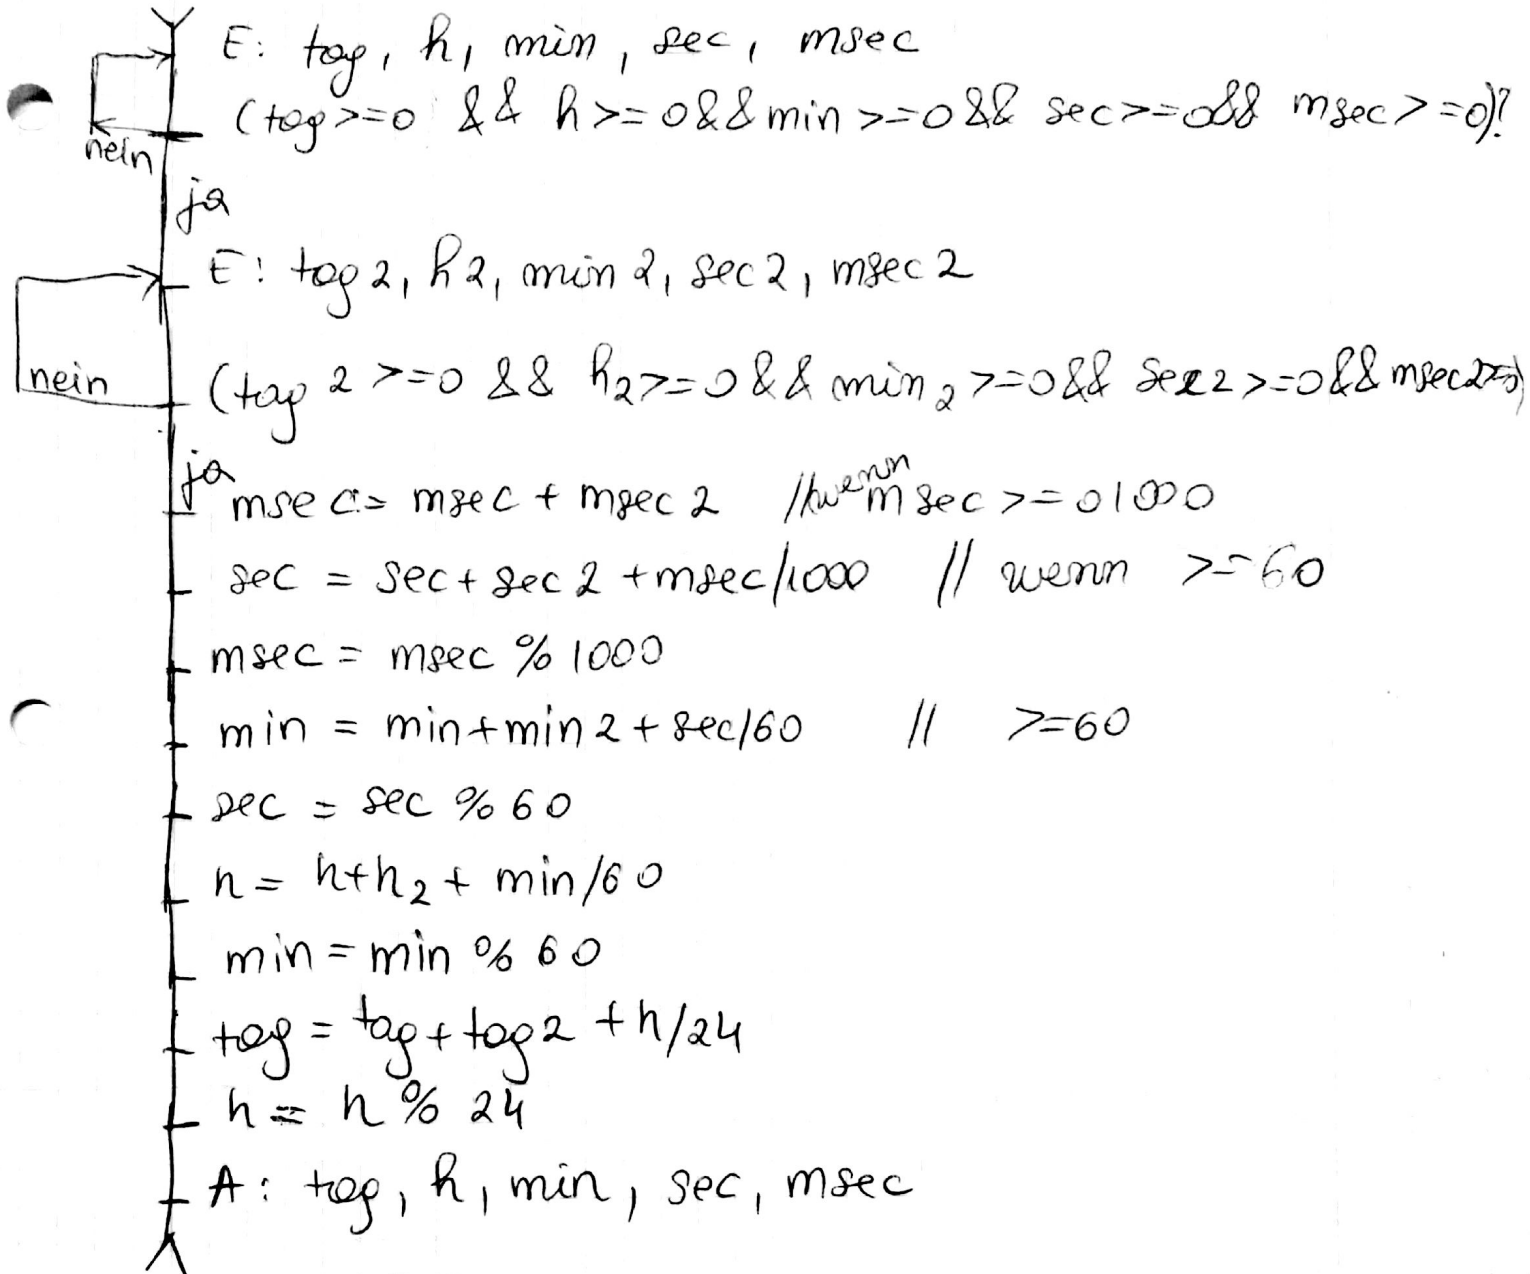 E: tag, h, min, sec, msec
(tag>=0 && h>=0&&min>=0&& sec>=0&& msec>=0)?
nein
ja
E: tag2, h2, min2, sec2, msec2
nein (tag2>=0 && h2>=0&& min2>=0&& sec2>=0&& msec2>=0)
ja
msec = msec + msec2 // wenn msec >= 01000
sec = sec + sec2 + msec/1000 // wenn >=60
msec = msec % 1000
min = min+min2 + sec/60 // >=60
sec = sec % 60
h = h+h2 + min/60
min = min % 60
tag = tag + tag2 + h/24
h = h % 24
A: tag, h, min, sec, msec